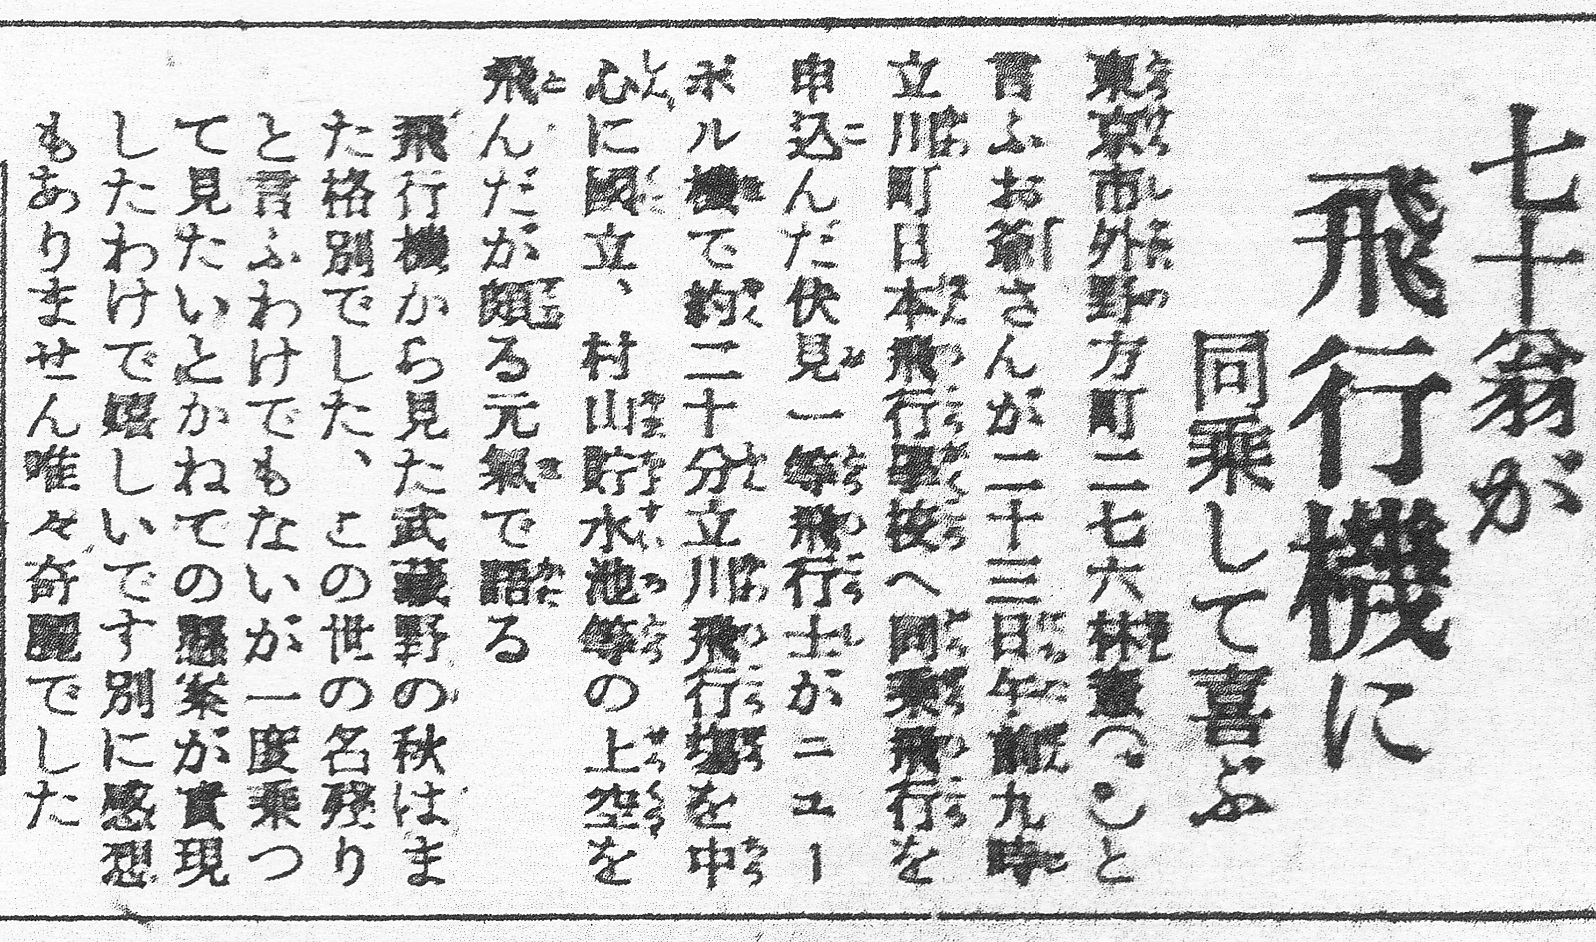 七十翁が
飛行機に
同乘して喜ぶ
東京市外野方町二七六林董(つこと
言ふお爺さんが二十三日午前九時
立川町日本飛行學校へ同乘飛行を
申込んだ伏見一等飛行士がニユー
ポル機で約二十分立川飛行場を中
心に國立、村山貯水池等の上空を
飛んだが頗る元氣で語る
飛行機から見た武藏野の秋はま
た格別でした、この世の名殘り
と言ふわけでもないが一度乘つ
て見たいとかねての懸案が實現
したわけで嬉しいです別に感想
もありません唯々奇麗でした